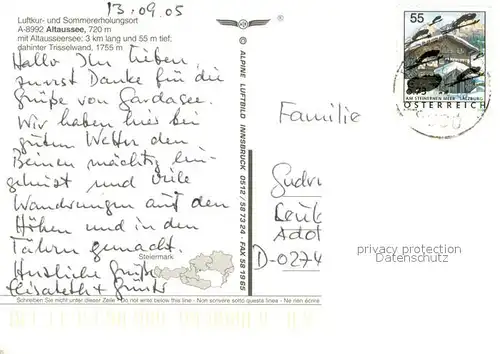 13.09.05
Luftkur- und Sommererholungsort
A-8992 Altaussee, 720 m
mit Altausseersee: 3 km lang und 55 m tief;
dahinter Trisselwand, 1755 m
Hallo Ihr Lieben,
zuerst Danke für die
Grüße von Gardasee.
Wir haben hier bei
gutem Wetter den
Beinen mächtig ein-
geheizt und viele
Wanderungen auf den
Höhen und in den
Tälern gemacht.
Herzliche Grüße
Elisabeth + Günter
Steiermark
Schreiben Sie nicht unter dieser Zeile - Do not write below this line - Non scrivere sotto questa linea - Ne rien
© ALPINE LUFTBILD INNSBRUCK 0512/587324 - FAX 581965
55
AM STEINERNEN MEER SALZBURG
ÖSTERREICH
Familie
Gudr
D-0274
privacy protection
Datenschutz